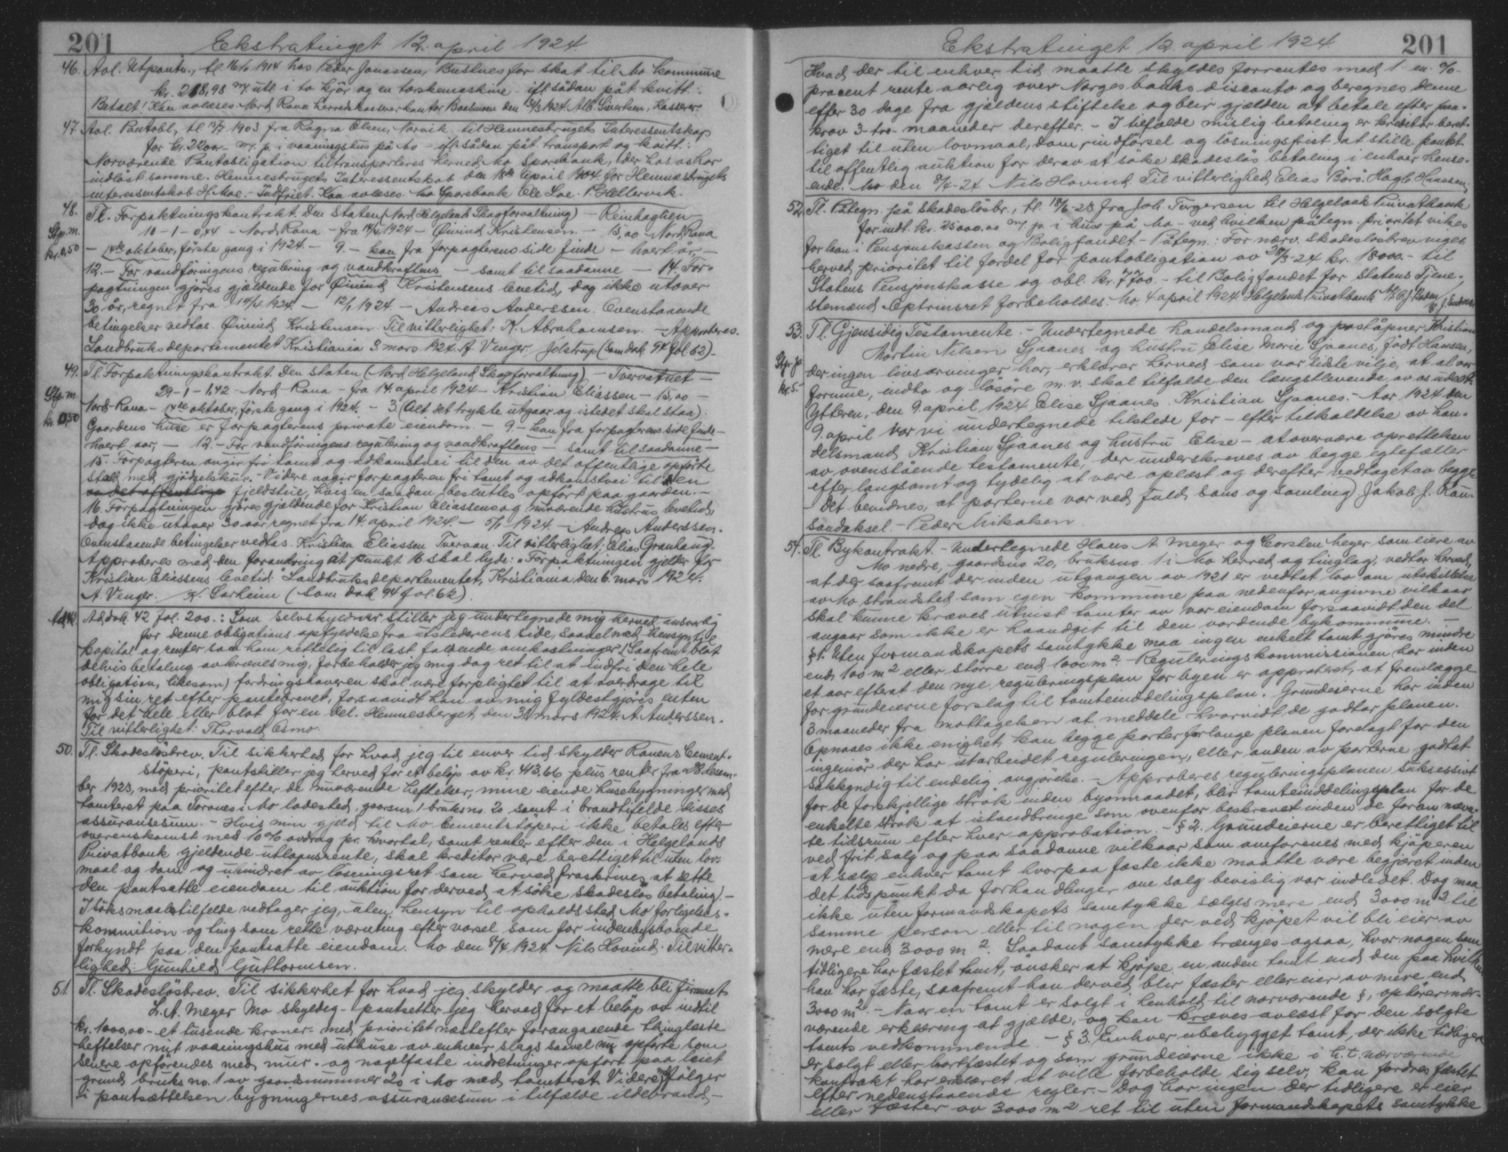 201
Ekstratinget 12. april 1924
46. Avl. Utpantn., tl 16/6 1914 hos Peder Jonassen, Buslnes for skat til Mo kommune
utl i to kjør og en torskemaskine ifl. sådan påt. kvitt:
47. Avl. Pantobl., tl 1903 fra Ragna Olsen, Norvik til Hemnesbrugets Interessentskap
i vaaningshus på Mo - ifl. sådan påt. transport og kvitt:
Nærværende Pantobligation tiltransporteres herved Mo Sparebank, der hos os har
indløst samme. Hemnesbrugets Interessentskab den april 1904. for Hemnesbrugets
interessentskab
48. Tl. Forpaktningskontrakt Den staten (Nord Helgeland Skogforvaltning) - Reinhaglien
10 - 1 - 0,54 - Nord Rana - fra 1924 - Øivind Kristensen - 15,00 - Nord Rana
- oktober, første gang i 1924 - 9 - kan fra forpagterens side finde - hvert år, -
12. - For vandføringens regulering og vandkraftens - samt til saadanne - 14. For-
pagtningen gjøres gjeldende for Øivind Kristensens levetid, dog ikke utover
30 år, regnet fra 1924 - 12/1 1924 - Andreas Anderssen. Ovenstaaende
betingelser vedtas. Øivind Kristensen Til vitterlighet: K. Abrahamsen. - Approberes.
Landbruksdepartementet Kristiania 3 mars 1924. A Venger. Jelstrup (Som dok 94 fol 62) -
49. Tl Forpaktningskontrakt Den staten (Nord Helgeland Skogforvaltning) - Tvervatnet -
29 - 1 - 1,42 - Nord Rana - fra 14 april 1924 - Kristian Eliassen - 15,00 -
Nord Rana - oktober, første gang i 1924. - 3 (Alt det trykte utgaar og istedet skal staa):
Gaardens huse er forpagterens private eiendom. - 9 - kan fra forpagterens side finde
hvert aar, - 12. - For vandføringens regulering og vandkraftens - samt til saadanne -
15. Forpagteren
stal med gjødselskur. Videre
fjeldstue, hvis en saadan besluttes opført paa gaarden. -
16 Forpagtningen gjøres gjeldende for Kristian Eliassens og nuværende hustrus levetid
dog ikke utover 30 aar regnet fra 14. april 1924. - 5/1 1924. - Andreas Anderssen.
Ovenstaaende betingelser vedtas. Kristian Eliassen Tvervaan. Til vitterlighet: Elias Granhaug.
Approberes med den forandring at punkt 16 skal lyde: "Forpaktningen gjelder for
Kristian Eliassens levetid." Landbruksdepartementet, Kristiania den 6. mars 1924.
A. Venger. Carheim (Som dok 94 fol 62).
Ad dok 42 fol. 200.: Som selvskyldner stiller jeg undertegnede mig herved ansvarlig
for denne obligations opfyldelse fra utstederens side saavel med hensyn til
kapital og renter som ham rettelig tillest faldende omkostninger. (Saafremt blot
delvis betaling avkræves mig, forbeholder jeg mig dog ret til at indfri den hele
obligation, likesom) fordringshaveren skal være forpligtet til at overdrage til
mig sin ret efter pantebrevet, forsaavidt han av mig fyldestgjøres enten
for det hele eller blot for en del. Hemnesberget, den mars 1924. A. Anderssen.
Til vitterlighet: Thorvald Osmo.
50. Tl. Skadesløsbrev. Til sikkerhed for hvad jeg til enver tid skylder Ranens Cement-
støperi, pantstiller jeg herved for et beløp av kr. 413.66 plus renter fra
ber 1923, med prioritet efter de nuværende heftelser, mine eiende husebygninger med
tomteret paa Toraneset i Mo ladested, gaarsnr 1 bruksnr. 20 samt i brandtilfælde disses
assuransesum. - Hvis min gjeld til Mo Cementstøperi ikke betales efter
overenskomst med 10 % avdrag pr. kvartal, samt renter efter den i Helgelands
Privatbank gjeldende utlaansrente, skal kreditor være berettiget til uten lov-
maal og dom og uhindret av løsningsret som herved frasskrives, at sette
den pantsatte eiendom til auktion for derved at søke skadesløs betaling). -
I søksmaalstilfelde vedtager jeg, uten hensyn til opholdssted Mo forligelses-
kommition og ting som rette værneting efter varsel som for indenbysboende
forkyndt paa den pantsatte eiendom. Mo den 9/4 1924. Nils Hovind. Til vitter-
lighed: Gunhild Guttormsen.
51 Tl. Skadesløsbrev. Til sikkerhet for hvad jeg skylder og maatte bli firmaet
L. A. Meyer Mo skyldig - pantsetter jeg herved for et beløp av indtil
kr. 1000,00 - et tusende kroner - med prioritet næst efter forangaaende thinglæste
heftelser mit vaaningshus med uthuse av enhver slags saavel nu opførte som
senere opførendes med mur- og nagelfaste indretninger opført paa leiet
grund bruks no. 1 av gaardsnummer 20 i Mo med tomteret. Videre følger
i pantsættelsen bygningernes assurancesum i tilfælde ildebrand. -
Ekstratinget 12. april 1924
201
Hvad der til enhver tid maatte skyldes forrentes med 1 - en - %
procent rente aarlig over Norges banks disconto og beregnes denne
efter 30 dage fra gjældens stiftelse og blir gjælden at betale efter paa-
krav 3 - tre - maaneder derefter. - I tilfælde mislig betaling er kreditor beret-
tiget til uten lovmaal, dom, indførsel og løsningsfrist at stille pantet
til offentlig auktion for derav at søke skadesløs betaling i enhver hense-
ende. Mo den 9/4 - 24 Nils Hovind Til vitterlighed Elias Børø. Hagb Hansen
52. Tl. Påtegn. på skadesløsbr., tl. 18/6 - 23 fra Joh Turgersen til Helgelands Privatbank
for indt. kr. 25000,00 i hus på Mo - ved hvilken påtegn. prioritet vikes
for lån i Pensjonskassen og Boligfondet - Påtegn: For nærv. skadesløsbrev viges
herved prioritet til fordel for pantobligation av - 24 kr. 18000. - til
Statens Pensjonskasse og obl kr. 7700. - til Boligfondet for Statens Tjene-
stemænd. Optrinsret forbeholdes. Mo 9 april 1924 Helgelands Privatbank
53. Tl Gjensidig Testamente. - Undertegnede handelsmand og postaapner Kristian
Martin Nilsen Sjaanes og hustru Elise Marie Sjaanes, født Hansen,
der ingen livsarvinger har, erklærer herved som vor sidste vilje, at al vor
formue, indbo og løsøre m.v. skal tilfalde den længstlevende av os udelt.
Ytteren, den 9 april 1924 Elise Sjaanes. Kristian Sjaanes. - Aar 1924 den
9. april var vi undertegnede tilstede for - efter tilkaldelse av han-
delsmand Kristian Sjaanes og hustru Elise - at overvære oprettelsen
av ovenstående testamente, der underskreves av begge egtefæller
efter langsomt og tydelig at være oplæst og derefter vedtaget av begge.
Det bevidnes, at parterne var ved fuld sans og samling) Jakob J. Ran-
Peder Mikalsen.
54. Tl. Bykontrakt. - Undertegnede Hans A Meyer og Corsten Meyer som eiere av
Mo nedre, gaardsno 20, bruksno 1 i Mo herred og tinglag, vedtar herved,
at der saafremt der inden utgangen av 1921 er vedtat lov om utskillelse
av Mo strandsted som egen kommune paa nedenfor angivne vilkaar
skal kunne kræves utvist tomter av vor eiendom forsaavidt den del
angaar som ikke er haandgit til den vordende bykommune. -
§ 1. Uten formandskapets samtykke maa ingen enkelt tomt gjøres mindre
end 500 m² eller større end 1000 m² - Reguleringskommissionen har inden
et aar efterat den nye reguleringsplan for byen er approbert, at fremlægge
for grundeierne forslag til tomteinddelingsplan. Grundeierne har inden
3 maaneder fra mottagelsen at meddele hvorvidt de godtar planen.
Opnaaes ikke enighet kan begge parter forlange planen forelagt for den
ingeniør der har utarbeidet reguleringen, eller anden av parterne godtat
sakkyndig til endelig avgjørelse. - Approberes reguleringsplanen suksessivt
for de forskjellige strøk inden byomraadet, blir tomteinddelingsplan for de
enkelte strøk at istandbringe som ovenfor beskrevet inden de foran nævn-
te tidsrum efter hver approbation. - § 2. Grundeierne er berettiget til
ved frit salg og paa saadanne vilkaar som omforenes med kjøperen
at selge enhver tomt hvorpaa fæste ikke maatte være begjæret inden
det tidspunkt da forhandlinger om salg bevislig var indledet. Dog maa
ikke uten formandskapets samtykke sælges mere end 3000 m² til
samme person eller til nogen der ved kjøpet vil bli eier av
mere end 3000 m². Saadant samtykke trænges ogsaa, hvor nogen som
tidligere har fæstet tomt, ønsker at kjøpe en anden tomt end den paa hvilken
han har fæste, saafremt han derved blir fæster eller eier av mere end
3000 m². - Naar en tomt er solgt i henhold til nærværende §, ophører nær-
værende erklæring at gjælde, og kan kræves avløst for den solgte
tomts vedkommende - § 3. Enhver ubebygget tomt, der ikke tidligere
er solgt eller bortfæstet og som grundeierne ikke i h. t. nærværende
kontrakt har erklæret at ville forbeholde sig selv, kan fordres fæstet
efter nedenstaaende regler. - Dog har ingen der tidligere er eier
eller fæster av 3000 m² ret til uten formandskapets samtykke